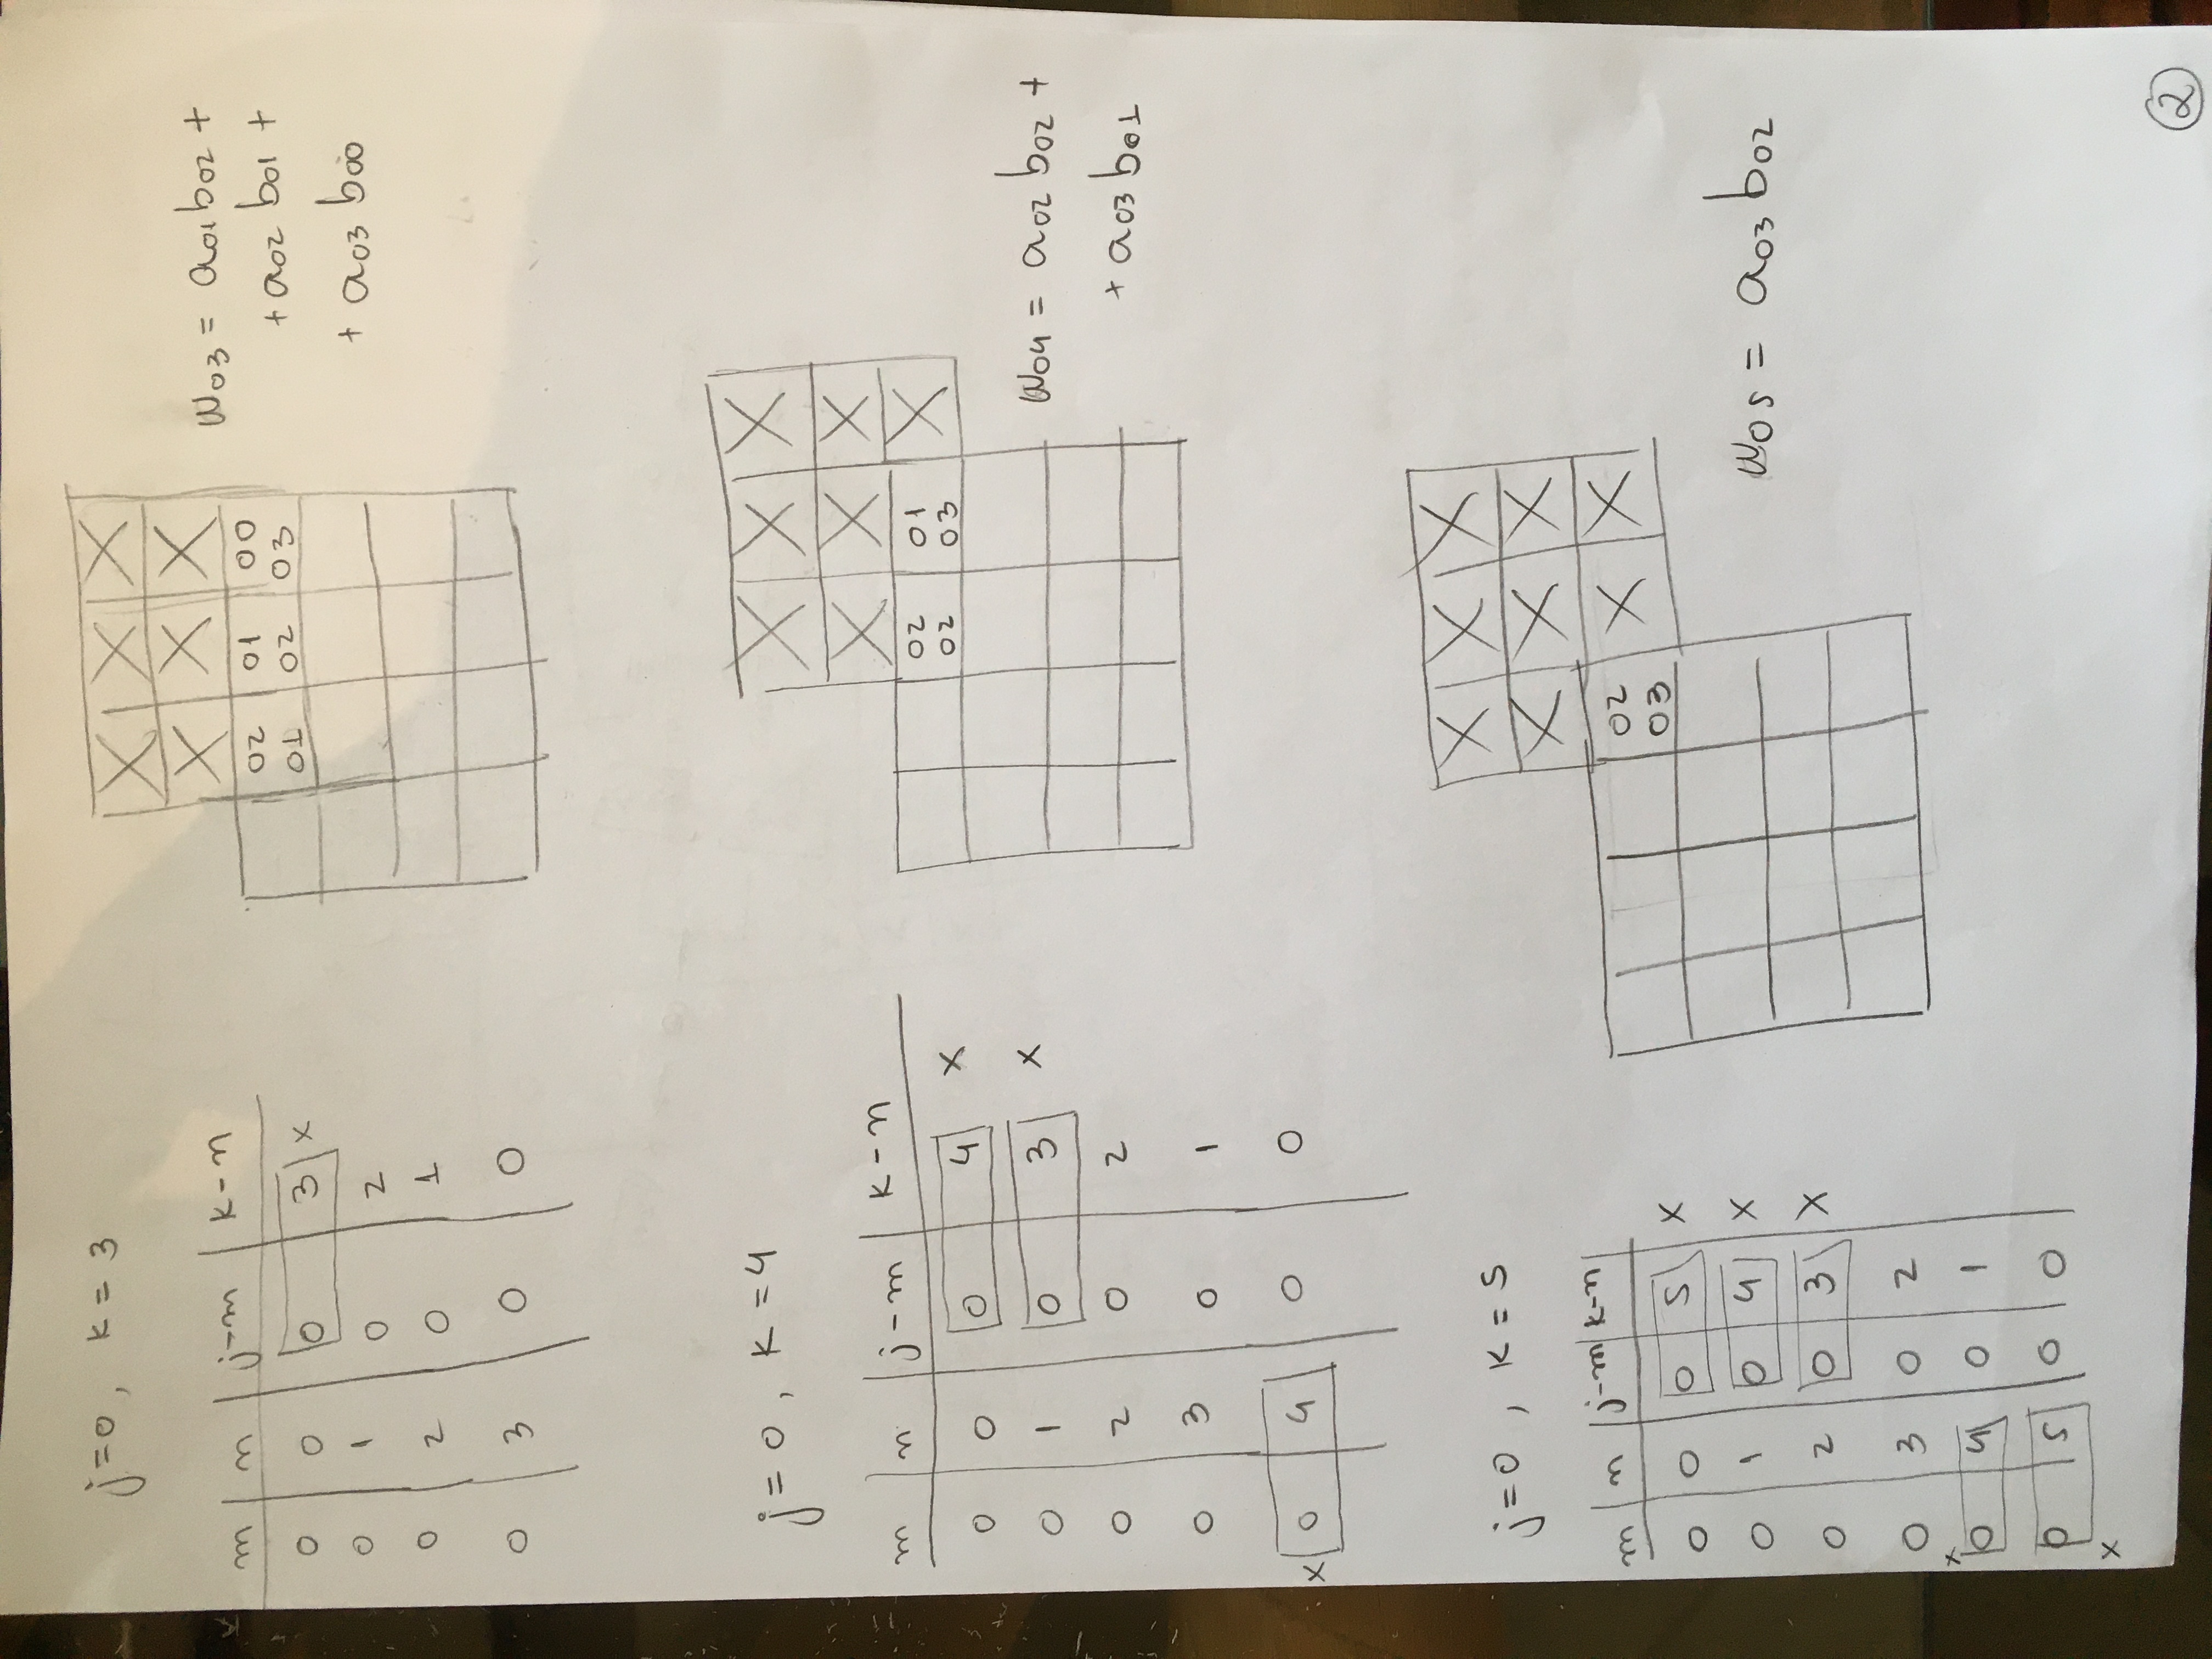 j=0, k=3
m n j-m k-n
0 0 0 3 x
0 1 0 2
0 2 0 1
0 3 0 0
X X X
X X X
02 01 00
01 02 03
w03 = a01b02 +
+ a02 b01 +
+ a03 b00
j=0, k=4
m n j-m k-n
0 0 0 4 x
0 1 0 3 x
0 2 0 2
0 3 0 1
x 0 4 0 0
X X X
X X X
02 01 X
02 03
w04 = a02 b02 +
+ a03 b01
j=0, k=5
m n j-m k-n
0 0 0 5 x
0 1 0 4 x
0 2 0 3 x
0 3 0 2
x 0 4 0 1
x 0 5 0 0
X X X
X X X
02 X X
03
w05 = a03 b02
2